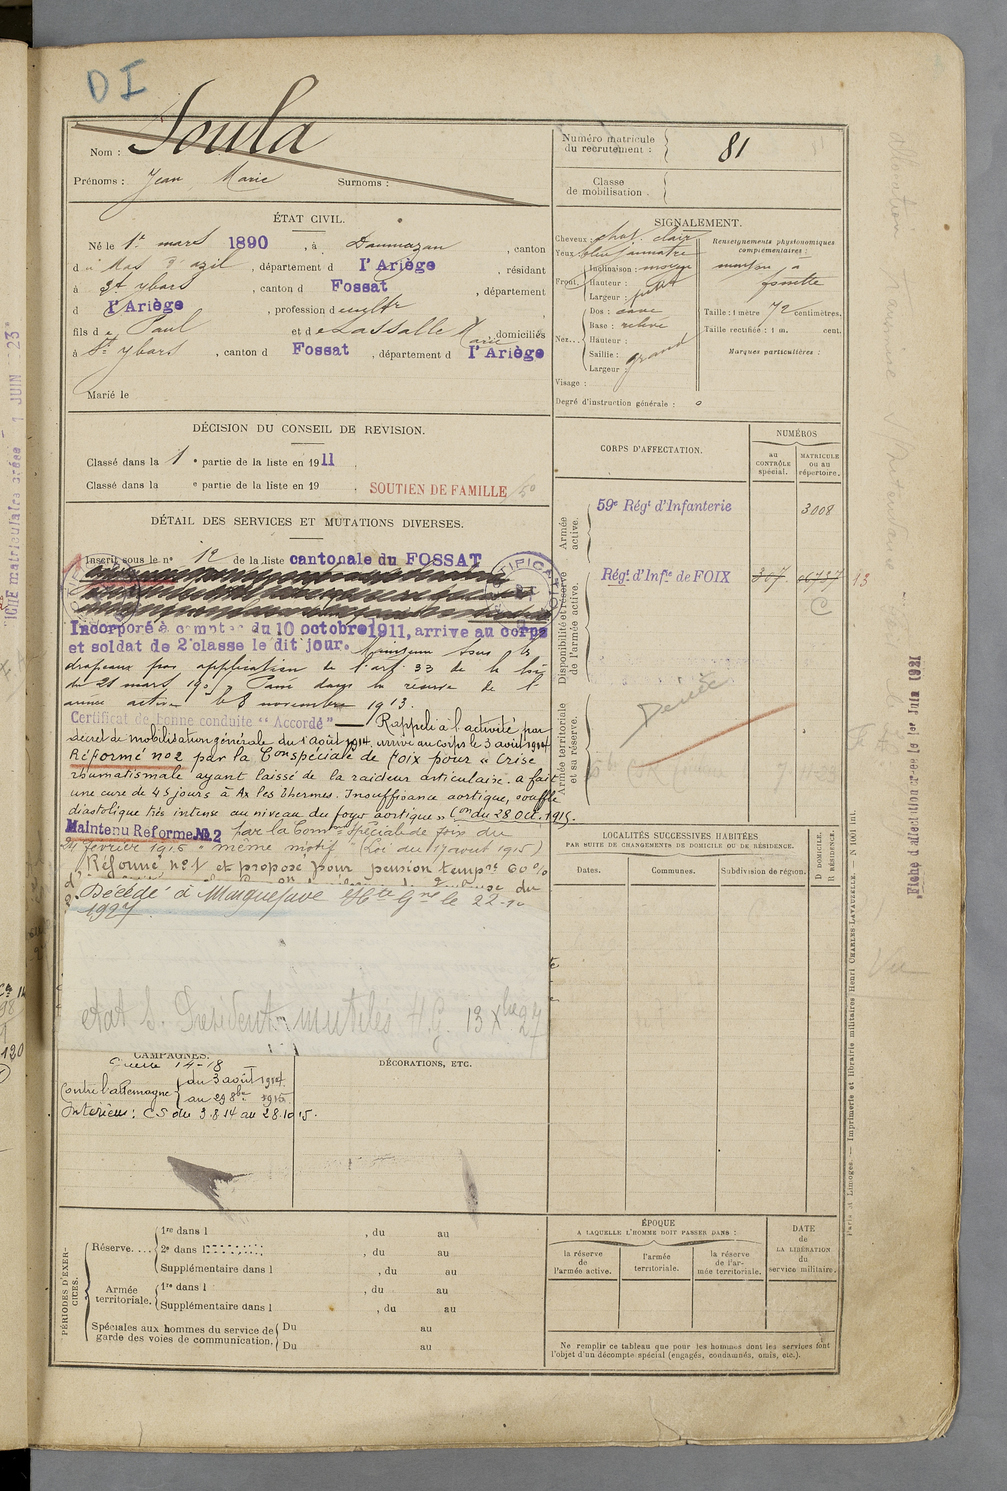 DI
Nom : Soula
Prénoms : Jean Marie Surnoms :
Numéro matricule du recrutement : 81
Classe de mobilisation :
ÉTAT CIVIL.
Né le 1er mars 1890, à Daumazan, canton
d u Mas d'azil, département d l'Ariège, résidant
à St ybars, canton d Fossat, département
d l'Ariège, profession d cultr
fils d e Paul et d e Lassalle Marie, domiciliés
à St ybars, canton d Fossat, département d l'Ariège
Marié le
SIGNALEMENT.
Cheveux : chat. clair
Yeux :
Front. Inclinaison : moyen
Hauteur :
Largeur : petit
Nez... Dos : cave
Base : relevé
Hauteur :
Saillie : grand
Largeur :
Visage :
Degré d'instruction générale : 0
Renseignements physionomiques complémentaires :
menton à
fossette
Taille : 1 mètre 72 centimètres.
Taille rectifiée : 1 m. cent.
Marques particulières :
DÉCISION DU CONSEIL DE REVISION.
Classé dans la 1e partie de la liste en 1911
Classé dans la e partie de la liste en 19 . SOUTIEN DE FAMILLE
DÉTAIL DES SERVICES ET MUTATIONS DIVERSES.
Inscrit sous le n° 12 de la liste cantonale du FOSSAT
Incorporé à compter du 10 octobre 1911, arrive au corps
et soldat de 2e classe le dit jour. Maintenu sous les
drapeaux par application de l'art. 33 de la loi
du 21 mars 1905. Passé dans la réserve de l'
armée active le 8 novembre 1913.
Certificat de bonne conduite "Accordé" Rappelé à l'activité par
décret de mobilisation générale du 1 août 1914. arrivé au corps le 3 août 1914
Réformé no 2 par la Con spéciale de foix pour "Crise
rhumatismale ayant laissé de la raideur articulaire. a fait
une cure de 45 jours à Ax les thermes. Insuffisance aortique, souffle
diastolique très intense au niveau du foyer aortique" Con du 28 Oct. 1915.
Maintenu Réformé No 2 par la Comon Spéciale de foix du
24 février 1916 "même motif" (Loi du 17 aout 1915)
Réformé no 1 et proposé pour pension tempre 60 %
Décédé à Marquefave Hte Gne le 22-
1927
etat s. Président mutilés H.G. 13 Xbre 27
CORPS D'AFFECTATION.
NUMÉROS
au CONTRÔLE spécial.
MATRICULE ou au répertoire.
Armée active.
59e Régt d'Infanterie 3008
Disponibilité et réserve de l'armée active.
Régt d'Infie de FOIX 307
13
Armée territoriale et sa réserve.
LOCALITÉS SUCCESSIVES HABITÉES
PAR SUITE DE CHANGEMENTS DE DOMICILE OU DE RÉSIDENCE.
D DOMICILE.
R RÉSIDENCE.
Dates. Communes. Subdivision de région.
CAMPAGNES.
Guerre 14-18
Contre l'allemagne du 3 août 1914
au 29 8bre 1915
Intérieur : CS du 3.8.14 au 28.10.15.
DÉCORATIONS, ETC.
PÉRIODES D'EXERCICES.
Réserve.... 1re dans l , du au
2e dans l , du au
Supplémentaire dans l , du au
Armée territoriale. 1re dans l , du au
Supplémentaire dans l , du au
Spéciales aux hommes du service de garde des voies de communication. Du au
Du au
ÉPOQUE
A LAQUELLE L'HOMME DOIT PASSER DANS :
la réserve de l'armée active.
l'armée territoriale.
la réserve de l'armée territoriale.
DATE de LA LIBÉRATION du service militaire.
Ne remplir ce tableau que pour les hommes dont les services font
l'objet d'un décompte spécial (engagés, condamnés, omis, etc.).
Paris et Limoges. — Imprimerie et librairie militaires Henri CHARLES-LAVAUZELLE. — N 1001 int.
Fiche d'affectation créée le 1er Juin 1931
Vu